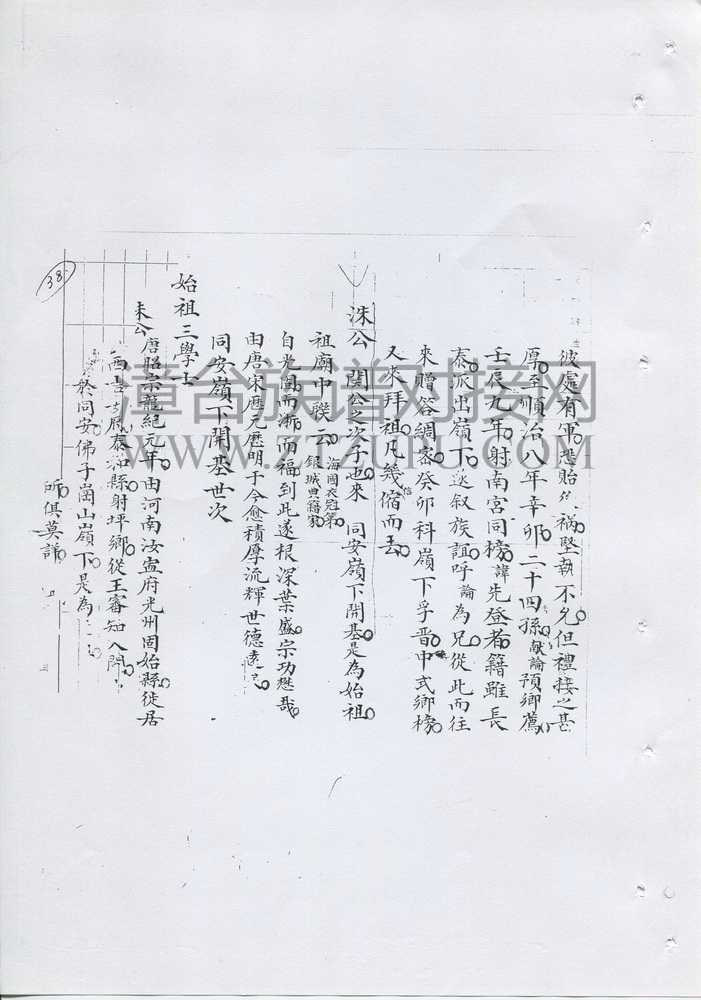 彼處有軍恐貽禍堅執不允但禮接之甚
厚至順治八年辛卯二十四孫献論預卿薦
壬辰九年射南宮同榜諱先登者籍雖長
泰派出嶺下遂叙族誼呼論為兄從此而往
來贈答綢密癸卯科嶺下孚晉中式鄉榜
又來拜祖凡幾信宿而去
洙公 閞公之次子也來 同安嶺下開基是為始祖
祖廟中聯云 海國衣冠第 銀城典籍家
自光閩而浙而福到此遂根深葉盛宗功懋哉
由唐宋歷元歷明于今愈積厚流輝世德遠
同安嶺下開基世次
始祖三學士
洙公 唐昭宗龍紀元年由河南汝寧府光州固始縣徙居
泰和縣射坪鄉從王審知入閩
於同安佛子崗山嶺下是為
所俱莫詳
38
漳台族谱对接网
WWW.ZTZUPU.COM